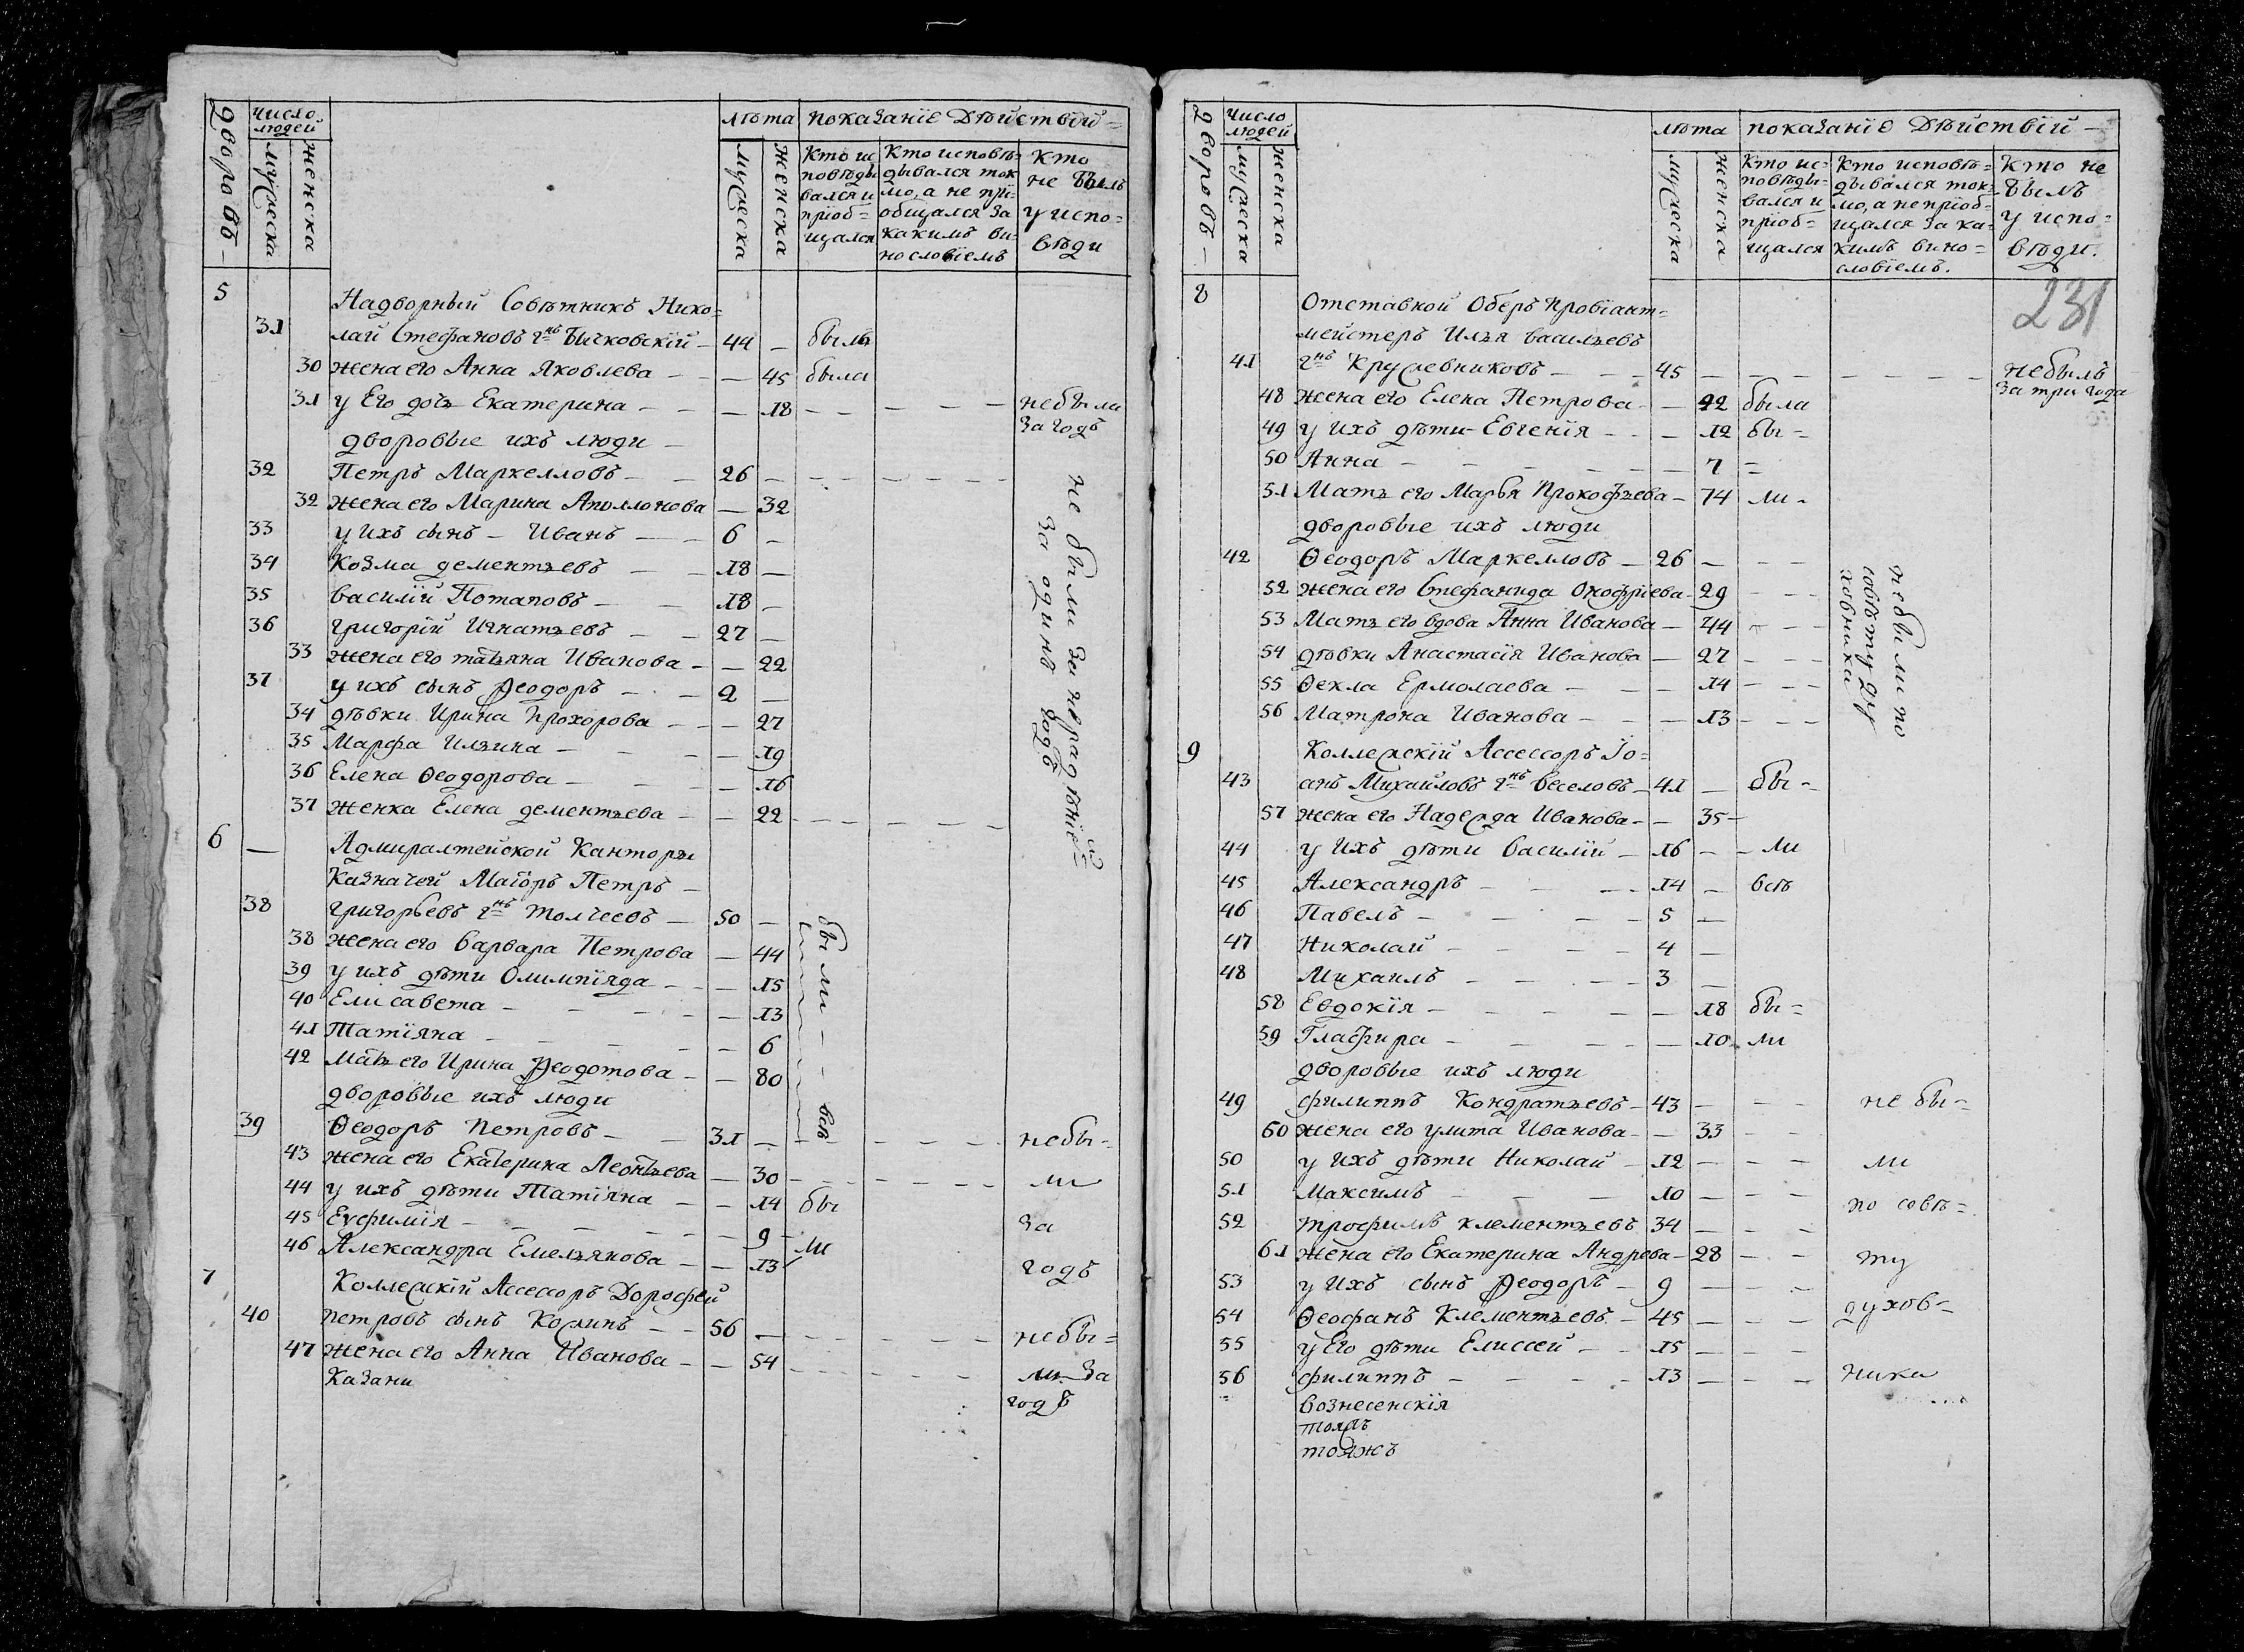 дворовъ
число людей
мужеска
женска
лѣта
мужеска
женска
показанїе дѣйствїй
Кто исповѣдывался и прїобщался
Кто исповѣдывался токмо, а не прїобщался за какимъ винословїемъ
Кто не былъ у исповѣди
5
Надворный Совѣтникъ Нико=
31 лай Стефановъ гнъ Бычковскїй – 44 – былъ
30 жена его Анна Яковлева – – 45 была
31 у Его дочь Екатерина – – 18 – – – – не были
за годъ
дворовые ихъ люди –
32 Петръ Маркелловъ – 26 –
32 жена его Марина Аполлонова – 32
33 у ихъ сынъ – Иванъ – 6 –
34 Козма дементьевъ – 18 –
35 василїй Потаповъ – 18 –
36 григорїй Игнатьевъ – 27 –
33 жена его татьяна Иванова – – 22
37 у ихъ сынъ Ѳеодоръ – 2 –
34 дѣвки Ирина Прохорова – – 27
35 Марфа Ильина – – 19
36 Елена Ѳеодорова – – 16
37 женка Елена дементьева – – 22
не были за нерадѣнїемъ
за одинъ годъ
6 – Адмиралтейской Канторы
Казначей Маїоръ Петръ –
38 григорьевъ гнъ Толчеевъ – 50 –
38 жена его Варвара Петрова – 44
39 у ихъ дѣти Олимпїяда – – 15
40 Елисавета – – 13
41 Татїяна – – 6
42 мать его Ирина Ѳеодотова – – 80
были – – – всѣ
дворовые ихъ люди
39 Ѳеодоръ Петровъ – 31 – – – – не бы=
43 жена его Екатерина Леонтьева – 30 – – – – ли
44 у ихъ дѣти Татїяна – – 14 бы
45 Еѵфимїя – – 9 – за
46 Александра Емельянова – – 13 ли
годъ
7 Коллежскїй Ассессоръ Дорофей
40 петровъ сынъ Кожинъ – – 56 – – – – не бы=
47 жена его Анна Иванова – – 54 – – – – ли за
Казани
годъ
дворовъ
Число людей
мужеска
женска
лѣта
мужеска
женска
показанїе дѣйствїй –
Кто исповѣды=вался и прїоб=щался
Кто исповѣ=дывался ток=мо, а не прїоб=щался за ка=кимъ вино=словїемъ.
Кто не былъ у испо=вѣди.
231
8
Отставной Оберъ провїант=
мейстеръ Илья васильевъ
41 гнъ Кружевниковъ – – – 45 – – – – – – не былъ
за три года
48 жена его Елена Петрова – – 42 была
49 у ихъ дѣти Евгенїя – – – 12 бы=
50 Анна – – – – 7 =
51 Мать его Марья Прокофьева – 74 ли –
дворовые ихъ люди
42 Ѳеодоръ Маркелловъ – 26 – – –
52 жена его Стефанида Онофрїева – 29 – – –
53 Мать его вдова Анна Иванова – 44 – – –
54 дѣвки Анастасїя Иванова – 27 – – –
55 Ѳекла Ермолаева – – – 14 – – –
56 Матрона Иванова – – – 13 – – –
не были по
совѣту ду
ховника
9
Коллежскїй Ассессоръ Їо=
43 анъ Михайловъ гнъ Веселовъ – 41 – бы=
57 жена его Надежда Иванова – – 35 –
44 у ихъ дѣти василїй – 16 – – ли
45 Александръ – – – 14 – всѣ
46 Павелъ – – – – 5 –
47 Николай – – – – 4 –
48 Михаилъ – – – – 3 –
58 Евдокїя – – – – – 18 бы=
59 Глафира – – – – – 10 – ли
дворовые ихъ люди
49 филиппъ Кондратьевъ – 43 – – – не бы=
60 жена его улита Иванова – – 33 – –
50 у ихъ дѣти Николай – 12 – – – ли
51 Максимъ – – – 10 – – – по совѣ=
52 трофимъ клементьевъ 34 – – –
61 жена его Екатерина Андрева – 28 – – ту
53 у ихъ сынъ Ѳеодоръ – 9 – – –
54 Ѳеофанъ Клементьевъ – 45 – – – духов=
55 у Его дѣти Елиссей – – 15 – – –
56 филиппъ – – – – 13 – – – ника
вознесенскїя
тожъ
тояжъ